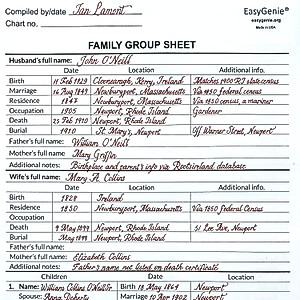 Compiled by/date Ian Lamont EasyGenie®
easygenie.org
Made in USA
Chart no.
FAMILY GROUP SHEET
Husband's full name: John O'Neill
Date Location Additional info.
Birth 11 Feb 1829 Kerry, Ireland Matches 1900 RI state census
Marriage 16 Aug 1849 Newburyport, Massachusetts Via 1850 federal census
Residence 1847 Newburyport, Massachusetts Via 1850 census, a mariner
Occupation 1905 Newport, Rhode Island Gardener
Death 25 Feb 1910 Newport, Rhode Island
Burial 1910 St. Mary's, Newport Off Warner Street, Newport
Father's full name: William O'Neill
Mother's full name: Mary Griffin
Additional notes: Birthplace and parent's info via Rootsireland database.
Wife's full name: Mary A. Collins
Date Location Additional info.
Birth 1829 Ireland
Residence 1850 Newburyport, Massachusetts Via 1850 Federal census
Occupation
Death 9 May 1899 Newport, Rhode Island Ave, Newport
Burial May 1899 Newport, Rhode Island
Father's full name:
Mother's full name: Elizabeth Collins
Additional notes: Father's name not listed on death certificate
Children Date Location
1. Name: William Collins O'Neil Sr. Birth 18 May 1864 Newport
Spouse: Anna Doherty Marriage 10 Apr 1902 Newport